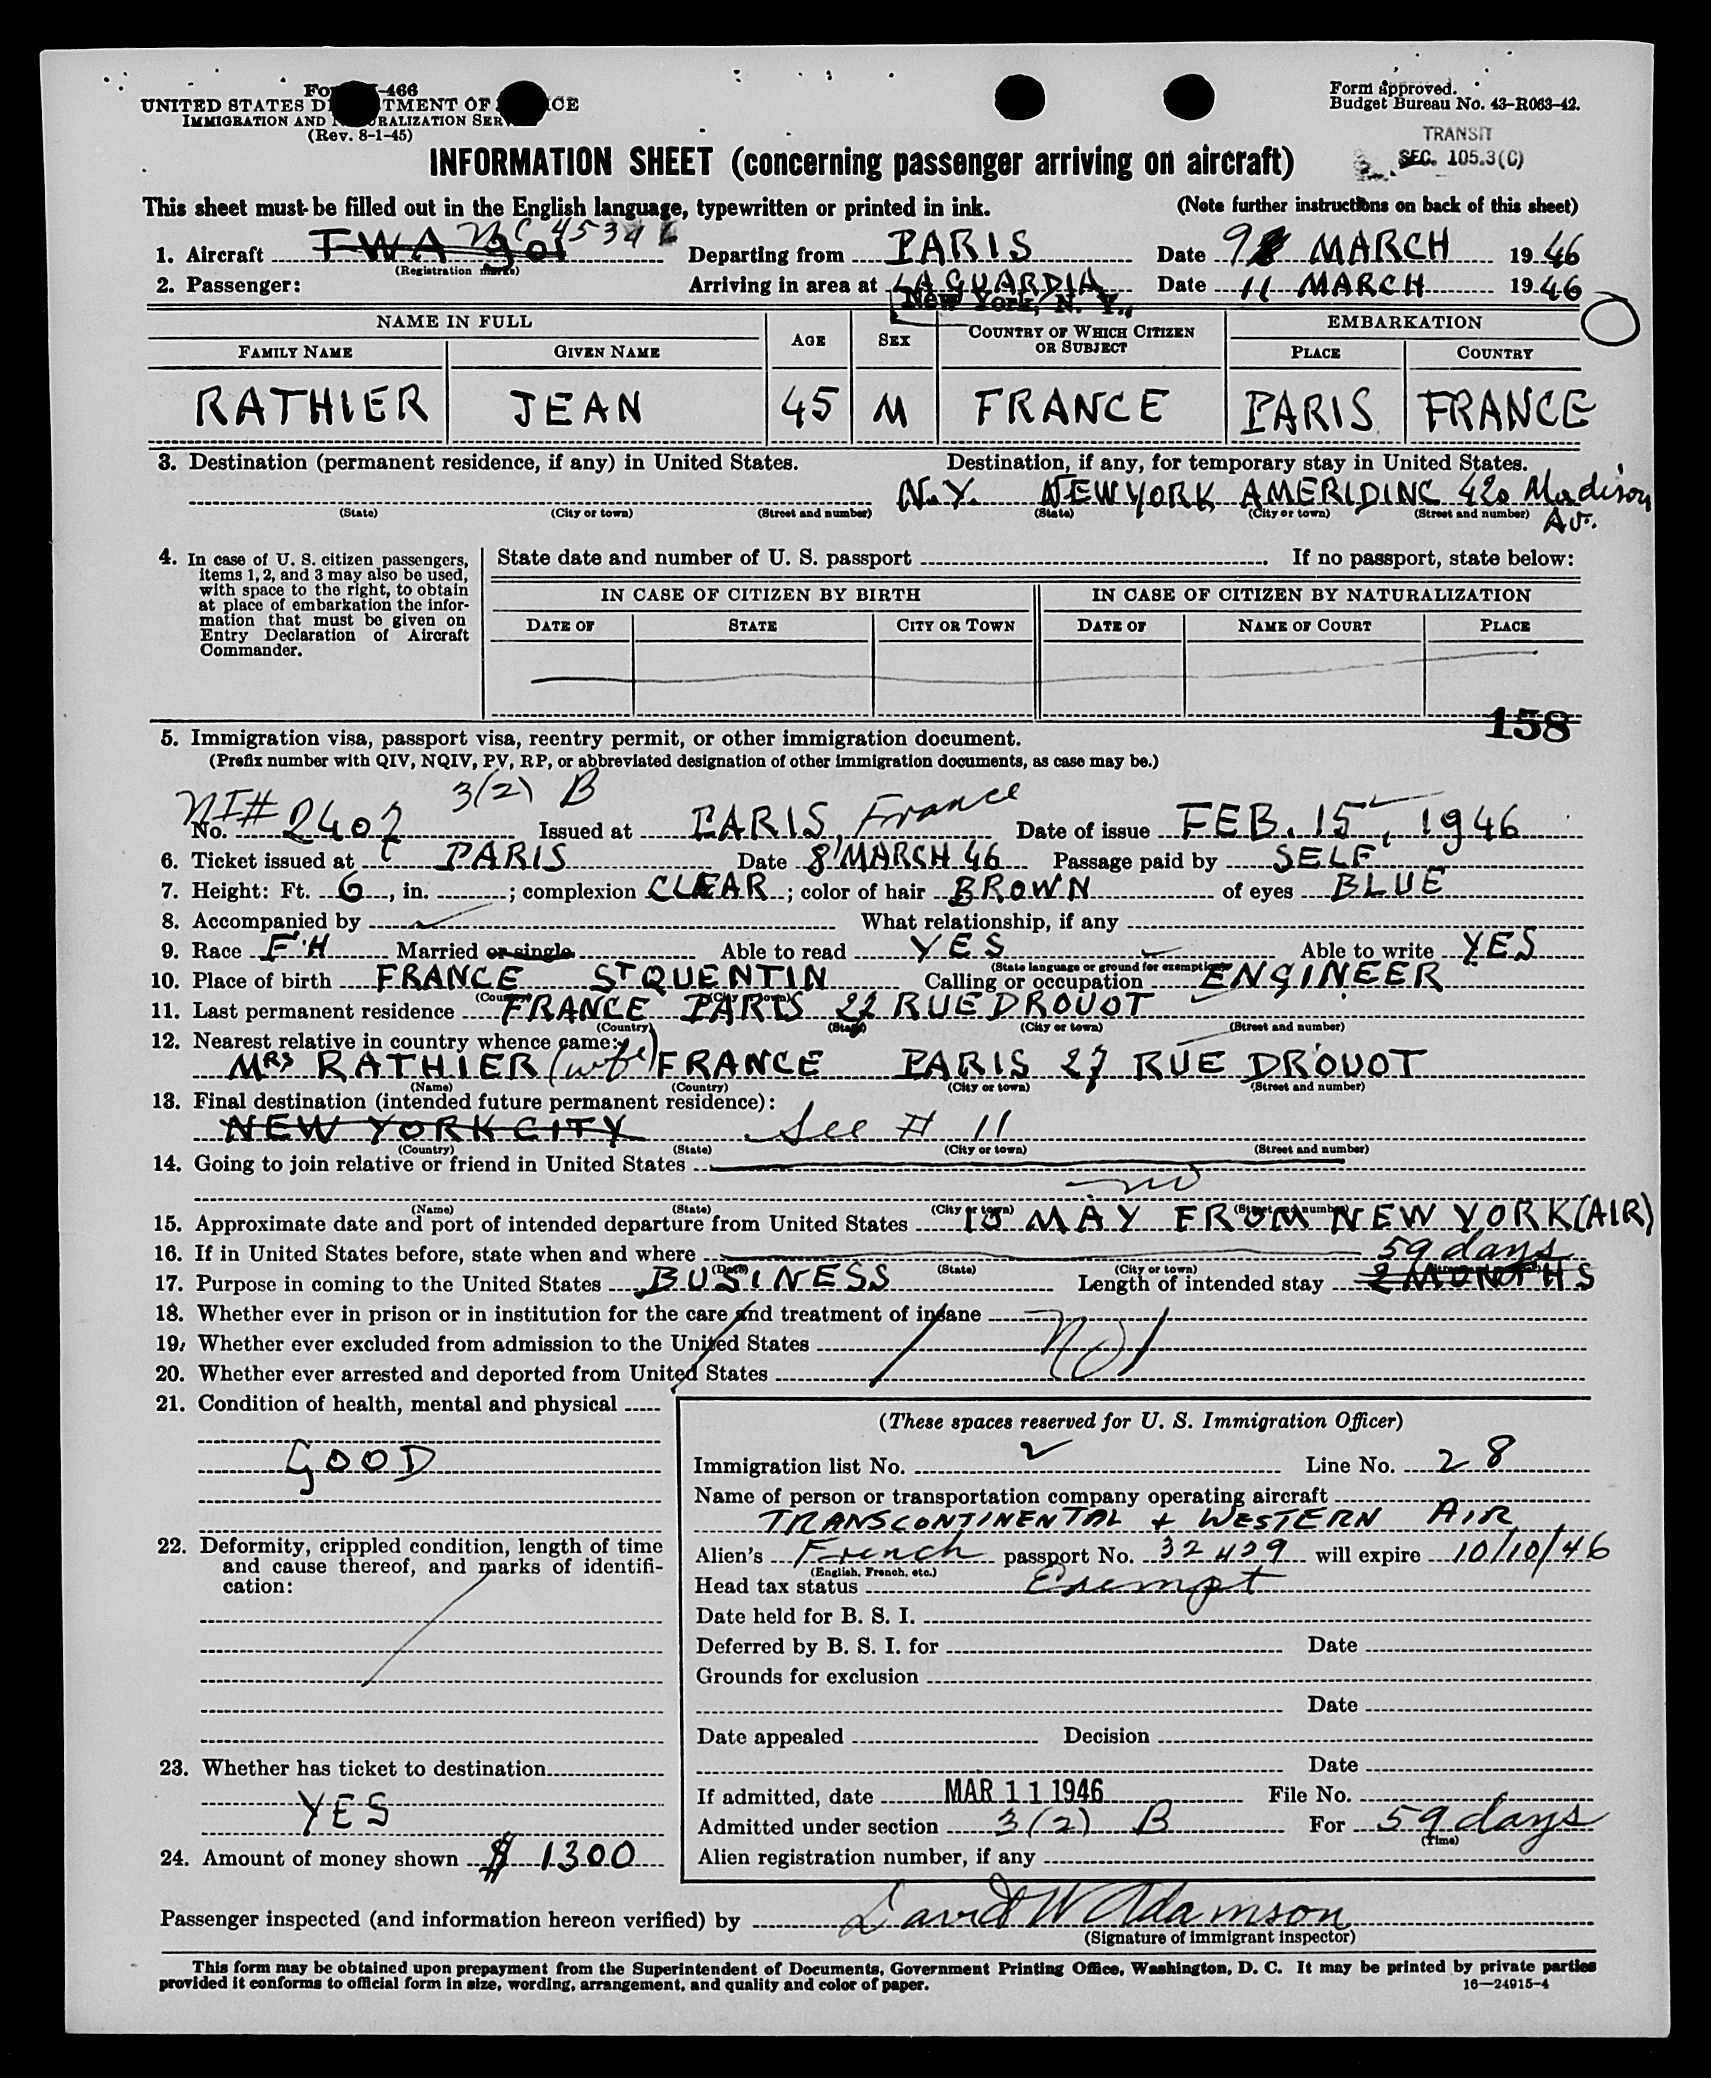 466
UNITED STATES D TMENT OF CE
IMMIGRATION AND N RALIZATION SER
(Rev. 8-1-45)
Form approved.
Budget Bureau No. 43-R063-42.
TRANSIT
SEC. 105.3(C)
INFORMATION SHEET (concerning passenger arriving on aircraft)
This sheet must be filled out in the English language, typewritten or printed in ink. (Note further instructions on back of this sheet)
1. Aircraft TWA 901 NC 4534 Departing from PARIS Date 9 MARCH 1946
(Registration marks)
2. Passenger: Arriving in area at LA GUARDIA Date 11 MARCH 1946
New York, N. Y.,
NAME IN FULL AGE SEX COUNTRY OF WHICH CITIZEN OR SUBJECT EMBARKATION
FAMILY NAME GIVEN NAME PLACE COUNTRY
RATHIER JEAN 45 M FRANCE PARIS FRANCE
3. Destination (permanent residence, if any) in United States. Destination, if any, for temporary stay in United States.
N.Y. NEW YORK AMERIDINC 420 Madison
(State) (City or town) (Street and number) (State) (City or town) (Street and number) Av.
4. In case of U. S. citizen passengers, State date and number of U. S. passport If no passport, state below:
items 1, 2, and 3 may also be used,
with space to the right, to obtain IN CASE OF CITIZEN BY BIRTH IN CASE OF CITIZEN BY NATURALIZATION
at place of embarkation the infor-
mation that must be given on DATE OF STATE CITY OR TOWN DATE OF NAME OF COURT PLACE
Entry Declaration of Aircraft
Commander.
158
5. Immigration visa, passport visa, reentry permit, or other immigration document.
(Prefix number with QIV, NQIV, PV, RP, or abbreviated designation of other immigration documents, as case may be.)
3(2) B
NI#
No. 2407 Issued at PARIS, France Date of issue FEB. 15, 1946
6. Ticket issued at PARIS Date 8 MARCH 46 Passage paid by SELF
7. Height: Ft. 6, in. ; complexion CLEAR; color of hair BROWN of eyes BLUE
8. Accompanied by What relationship, if any
9. Race FH Married or single Able to read YES Able to write YES
(State language or ground for exemption)
10. Place of birth FRANCE ST QUENTIN Calling or occupation ENGINEER
(Country) (City or town)
11. Last permanent residence FRANCE PARIS 27 RUE DROUOT
(Country) (State) (City or town) (Street and number)
12. Nearest relative in country whence came:
MRS RATHIER (wife) FRANCE PARIS 27 RUE DROUOT
(Name) (Country) (City or town) (Street and number)
13. Final destination (intended future permanent residence):
NEW YORK CITY See # 11
(Country) (State) (City or town) (Street and number)
14. Going to join relative or friend in United States
no
(Name) (State) (City or town) (Street and number)
15. Approximate date and port of intended departure from United States 10 MAY FROM NEW YORK (AIR)
16. If in United States before, state when and where
(Date) (State) (City or town) (Street and number)
59 days
17. Purpose in coming to the United States BUSINESS Length of intended stay 2 MONTHS
18. Whether ever in prison or in institution for the care and treatment of insane
19. Whether ever excluded from admission to the United States No
20. Whether ever arrested and deported from United States
21. Condition of health, mental and physical
GOOD
22. Deformity, crippled condition, length of time
and cause thereof, and marks of identifi-
cation:
23. Whether has ticket to destination
YES
24. Amount of money shown $ 1300
(These spaces reserved for U. S. Immigration Officer)
Immigration list No. 2 Line No. 28
Name of person or transportation company operating aircraft
TRANSCONTINENTAL + WESTERN AIR
Alien's French passport No. 32429 will expire 10/10/46
(English, French, etc.)
Head tax status Exempt
Date held for B. S. I.
Deferred by B. S. I. for Date
Grounds for exclusion
Date
Date appealed Decision
Date
If admitted, date MAR 11 1946 File No.
Admitted under section 3(2) B For 59 days
(Time)
Alien registration number, if any
Passenger inspected (and information hereon verified) by David W Adamson
(Signature of immigrant inspector)
This form may be obtained upon prepayment from the Superintendent of Documents, Government Printing Office, Washington, D. C. It may be printed by private parties
provided it conforms to official form in size, wording, arrangement, and quality and color of paper. 16—24915-4